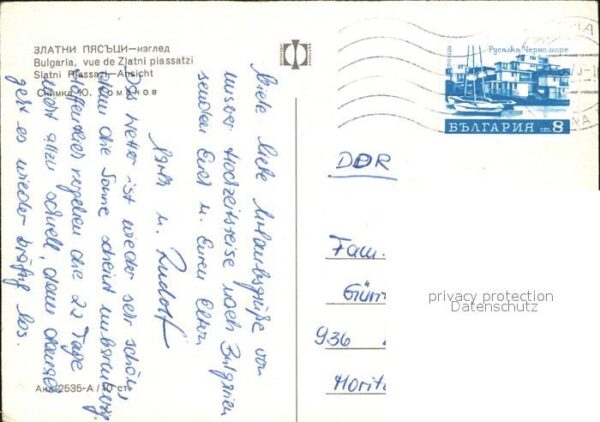 ЗЛАТНИ ПЯСЪЦИ—изглед
Bulgaria, vue de Zlatni piassatzi
Slatni Piassazi—Ansicht
Снимка Ю.
Viele liebe Urlaubsgrüße von
unsrer Hochzeitsreise nach Bulgarien
senden Euch u. Euren Eltern
u. Rudolf
Das Wetter ist wieder sehr schön,
die Sonne scheint
Hoffentlich vergehen die 22 Tage
nicht allzu schnell, denn
geht es wieder kräftig los.
Акл-2535-А / 10 ст.
Русалка Черноморе
поща
БЪЛГАРИЯ ст. 8
DDR
Fam.
936
privacy protection
Datenschutz